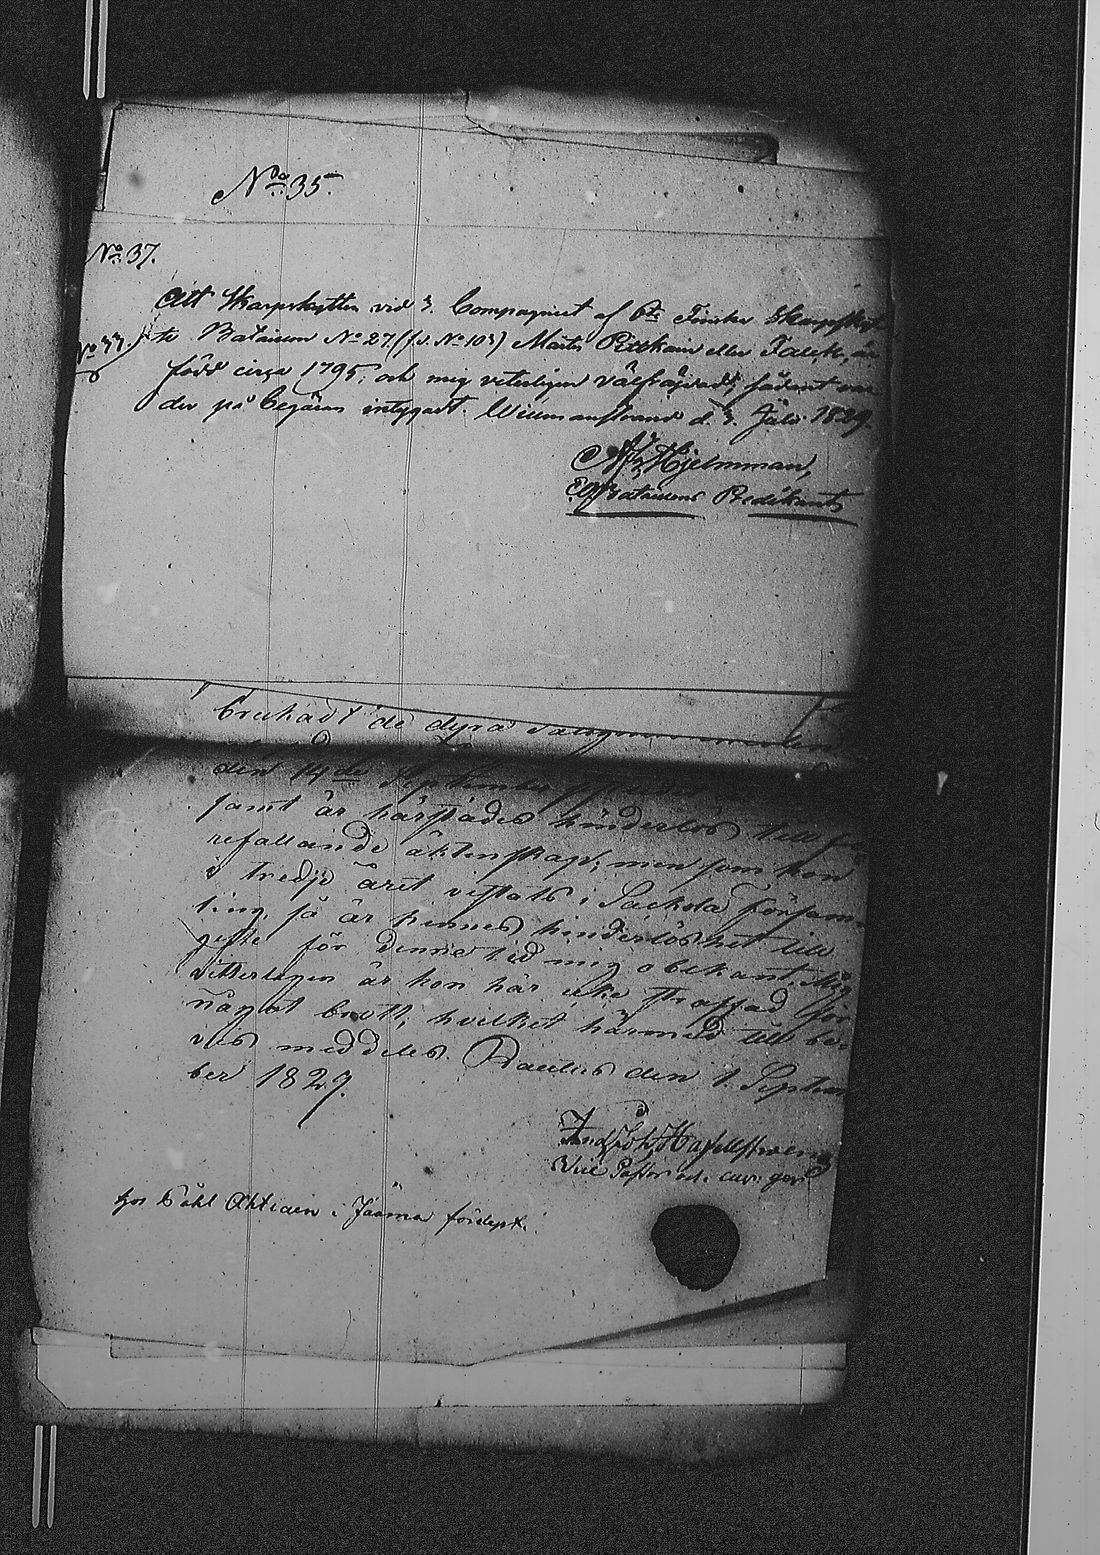 No 35.
No 37.
Att Skarpskytten vid 3. Compagniet af 6te Finska Skarpskyt-
No 77. te Bataison No 27 (f.d. No 103) Mårten Pitkäin eller Falck, är
född cirça 1795; och mig veterligen välfräjdad; sådant var-
der på begäran intygadt. Willmanstrand d. 3. Julii 1829.
Hjelmman,
Bataisons Predikant
brukadt de dyra
den 14de September
samt är härstädes hinderlös till
refallande äktenskap; men som hon
i tredje året vistats i Sackola Försam-
ling, så är hennes hinderlöshet till
gifte för denna tid mig obekant. Mig
vitterligen är hon här icke straffad för
något brott; hvilket härmed till be-
vis meddeles. Pautis den 1. Septem
ber 1829.
And. Joh.
Vice Pastor
hos Påhl Ahtiain i Jaama